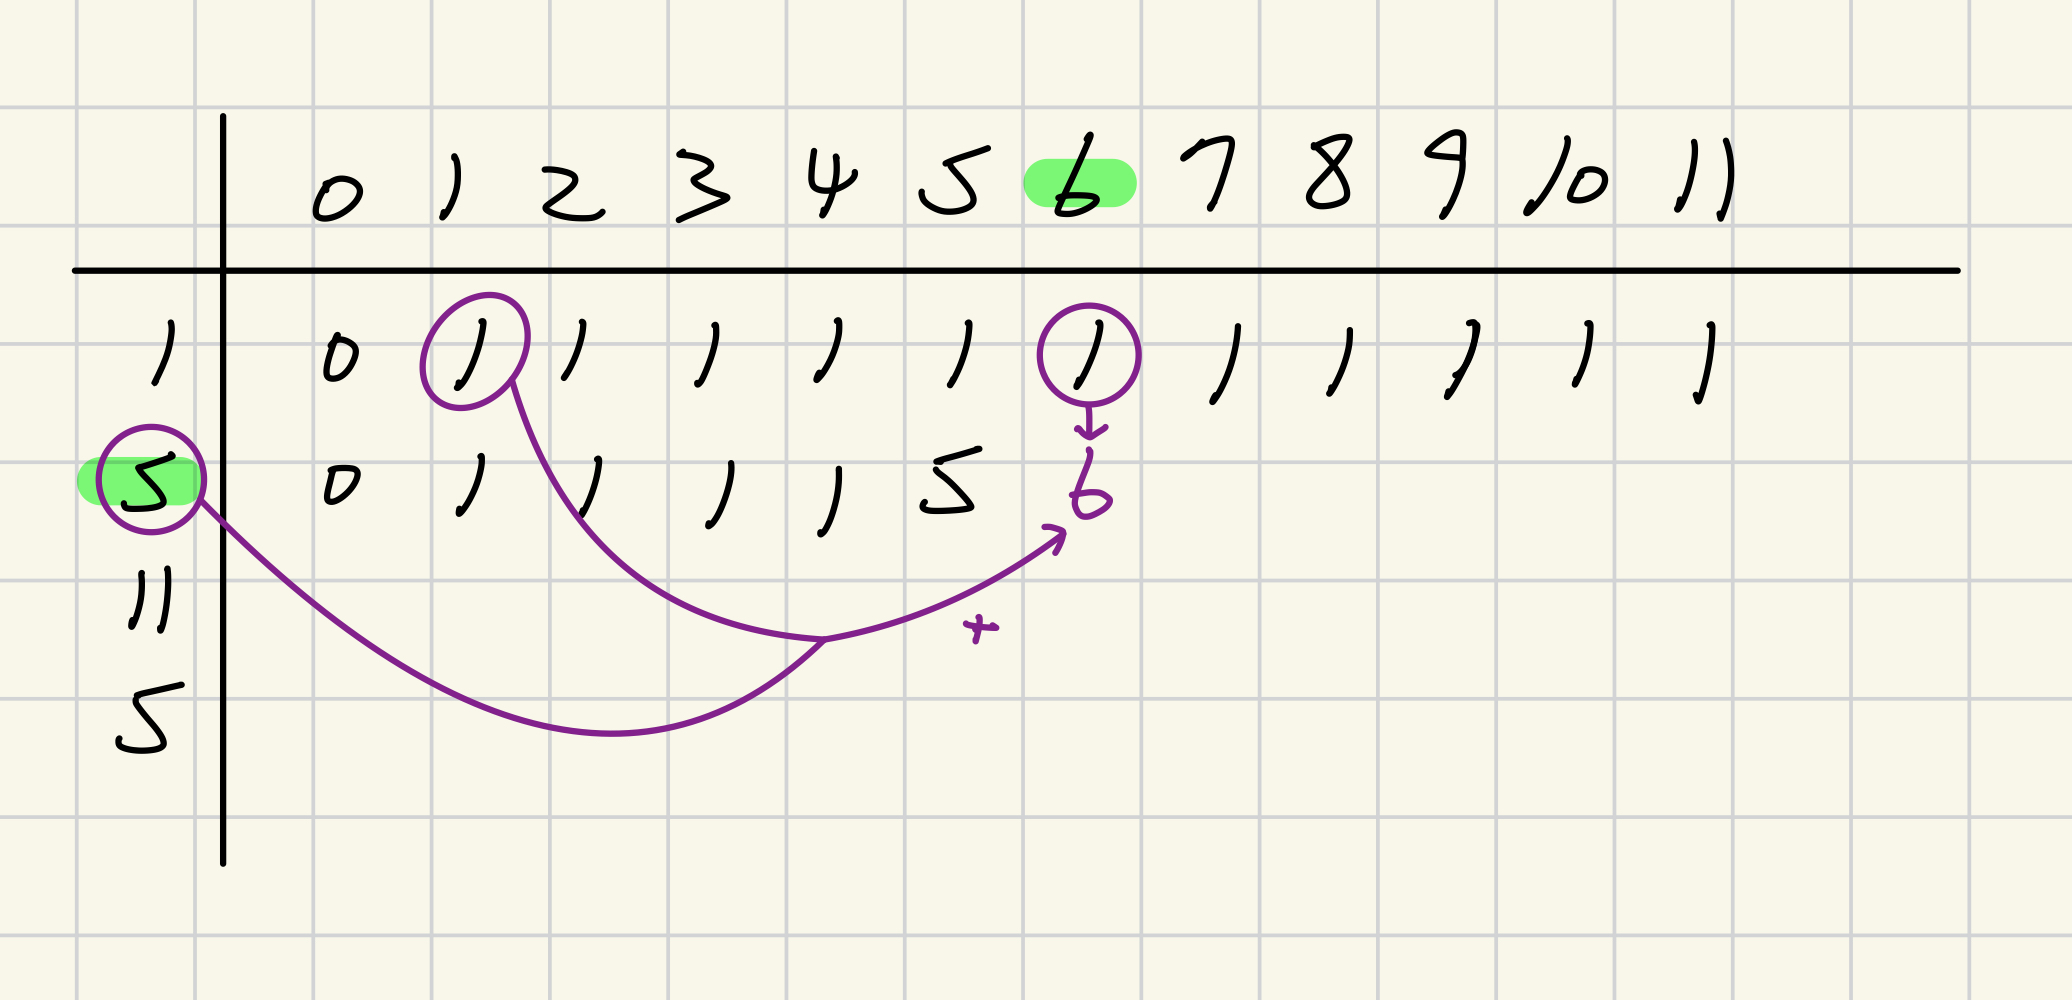 0 1 2 3 4 5 6 7 8 9 10 11
1 0 1 1 1 1 1 1 1 1 1 1 1
5 0 1 1 1 1 5 6
11
+
5